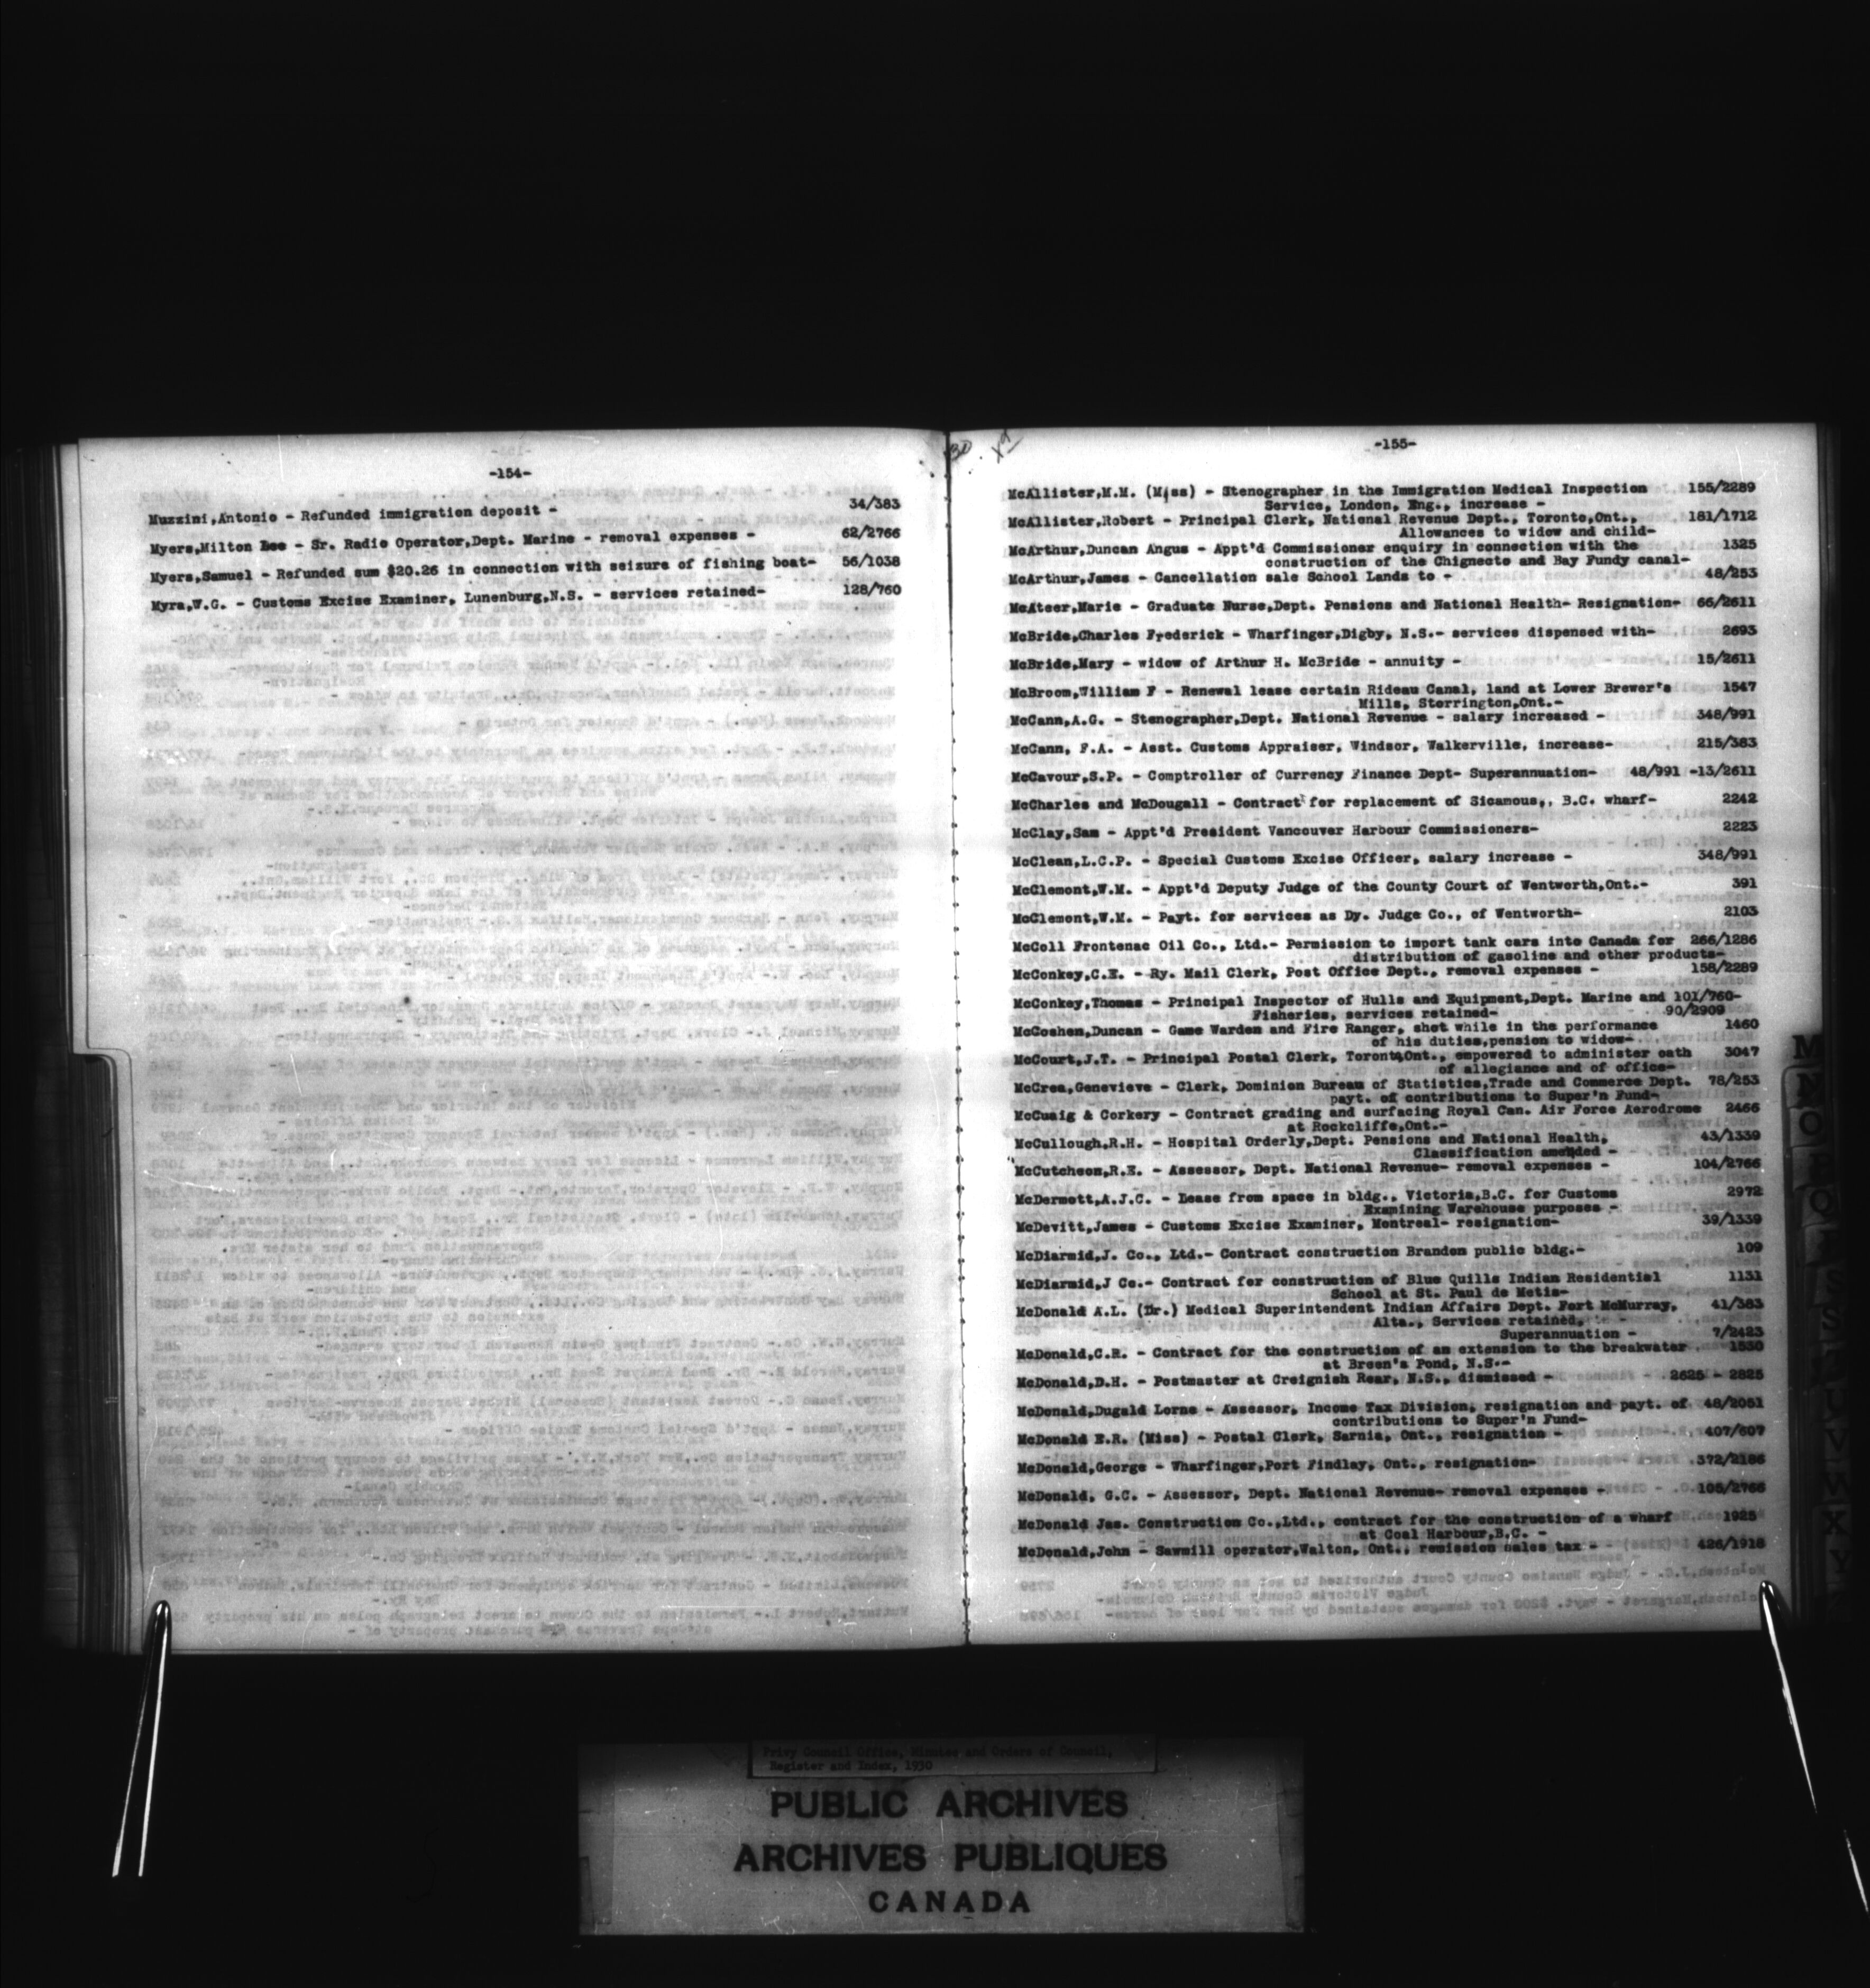 -154-
Muzzini,Antonio - Refunded immigration deposit - 34/383
Myers,Milton Lee - Sr. Radio Operator,Dept. Marine - removal expenses - 62/2766
Myers,Samuel - Refunded sum $20.26 in connection with seizure of fishing boat- 56/1038
Myra,W.G. - Customs Excise Examiner, Lunenburg,N.S. - services retained- 128/760
30 X9
-155-
McAllister,M.M. (Miss) - Stenographer in the Immigration Medical Inspection 155/2289
Service, London, Eng., increase -
McAllister,Robert - Principal Clerk, National Revenue Dept., Toronto,Ont., 181/1712
Allowances to widow and child-
McArthur,Duncan Angus - Appt'd Commissioner enquiry in connection with the 1325
construction of the Chignecto and Bay Fundy canal-
McArthur,James - Cancellation sale School Lands to - 48/253
McAteer,Marie - Graduate Nurse,Dept. Pensions and National Health- Resignation- 66/2611
McBride,Charles Frederick - Wharfinger,Digby, N.S.- services dispensed with- 2693
McBride,Mary - widow of Arthur H. McBride - annuity - 15/2611
McBroom,William F - Renewal lease certain Rideau Canal, land at Lower Brewer's 1547
Mills, Storrington,Ont.-
McCann,A.G. - Stenographer,Dept. National Revenue - salary increased - 348/991
McCann, F.A. - Asst. Customs Appraiser, Windsor, Walkerville, increase- 215/383
McCavour,S.P. - Comptroller of Currency Finance Dept- Superannuation- 48/991 -13/2611
McCharles and McDougall - Contract for replacement of Sicamous,, B.C. wharf- 2242
McClay,Sam - Appt'd President Vancouver Harbour Commissioners- 2223
McClean,L.C.P. - Special Customs Excise Officer, salary increase - 348/991
McClemont,W.M. - Appt'd Deputy Judge of the County Court of Wentworth,Ont.- 391
McClemont,W.M. - Payt. for services as Dy. Judge Co., of Wentworth- 2103
McColl Frontenac Oil Co., Ltd.- Permission to import tank cars into Canada for 266/1286
distribution of gasoline and other products-
McConkey,C.E. - Ry. Mail Clerk, Post Office Dept., removal expenses - 158/2289
McConkey,Thomas - Principal Inspector of Hulls and Equipment,Dept. Marine and 101/760-
Fisheries, services retained- 90/2909
McCoshen,Duncan - Game Warden and Fire Ranger, shot while in the performance 1460
of his duties,pension to widow-
McCourt,J.T. - Principal Postal Clerk, Toronto,Ont., empowered to administer oath 3047
of allegiance and of office-
McCrea,Genevieve - Clerk, Dominion Bureau of Statistics,Trade and Commerce Dept. 78/253
payt. of contributions to Super'n Fund-
McCuaig & Corkery - Contract grading and surfacing Royal Can. Air Force Aerodrome 2466
at Rockcliffe,Ont.-
McCullough,R.H. - Hospital Orderly,Dept. Pensions and National Health, 43/1339
Classification amended -
McCutcheon,R.E. - Assessor, Dept. National Revenue- removal expenses - 104/2766
McDermott,A.J.C. - Lease from space in bldg., Victoria,B.C. for Customs 2972
Examining Warehouse purposes -
McDevitt,James - Customs Excise Examiner, Montreal- resignation- 39/1339
McDiarmid,J. Co., Ltd.- Contract construction Brandon public bldg.- 109
McDiarmid,J Co.- Contract for construction of Blue Quills Indian Residential 1131
School at St. Paul de Metis-
McDonald A.L. (Dr.) Medical Superintendent Indian Affairs Dept. Fort McMurray, 41/383
Alta., Services retained,
Superannuation - 7/2423
McDonald,C.R. - Contract for the construction of an extension to the breakwater 1530
at Breen's Pond, N.S.-
McDonald,D.H. - Postmaster at Creignish Rear, N.S., dismissed - 2625 - 2825
McDonald,Dugald Lorne - Assessor, Income Tax Division, resignation and payt. of 48/2051
contributions to Super'n Fund-
McDonald E.R. (Miss) - Postal Clerk, Sarnia, Ont., resignation - 407/607
McDonald,George - Wharfinger,Port Findlay, Ont., resignation- 372/2186
McDonald, G.C. - Assessor, Dept. National Revenue- removal expenses - 105/2766
McDonald Jas. Construction Co.,Ltd., contract for the construction of a wharf 1925
at Coal Harbour,B.C. -
McDonald,John - Sawmill operator,Walton, Ont., remission sales tax - 426/1918
Privy Council Office, Minutes and Orders of Council,
Register and Index, 1930
PUBLIC ARCHIVES
ARCHIVES PUBLIQUES
CANADA